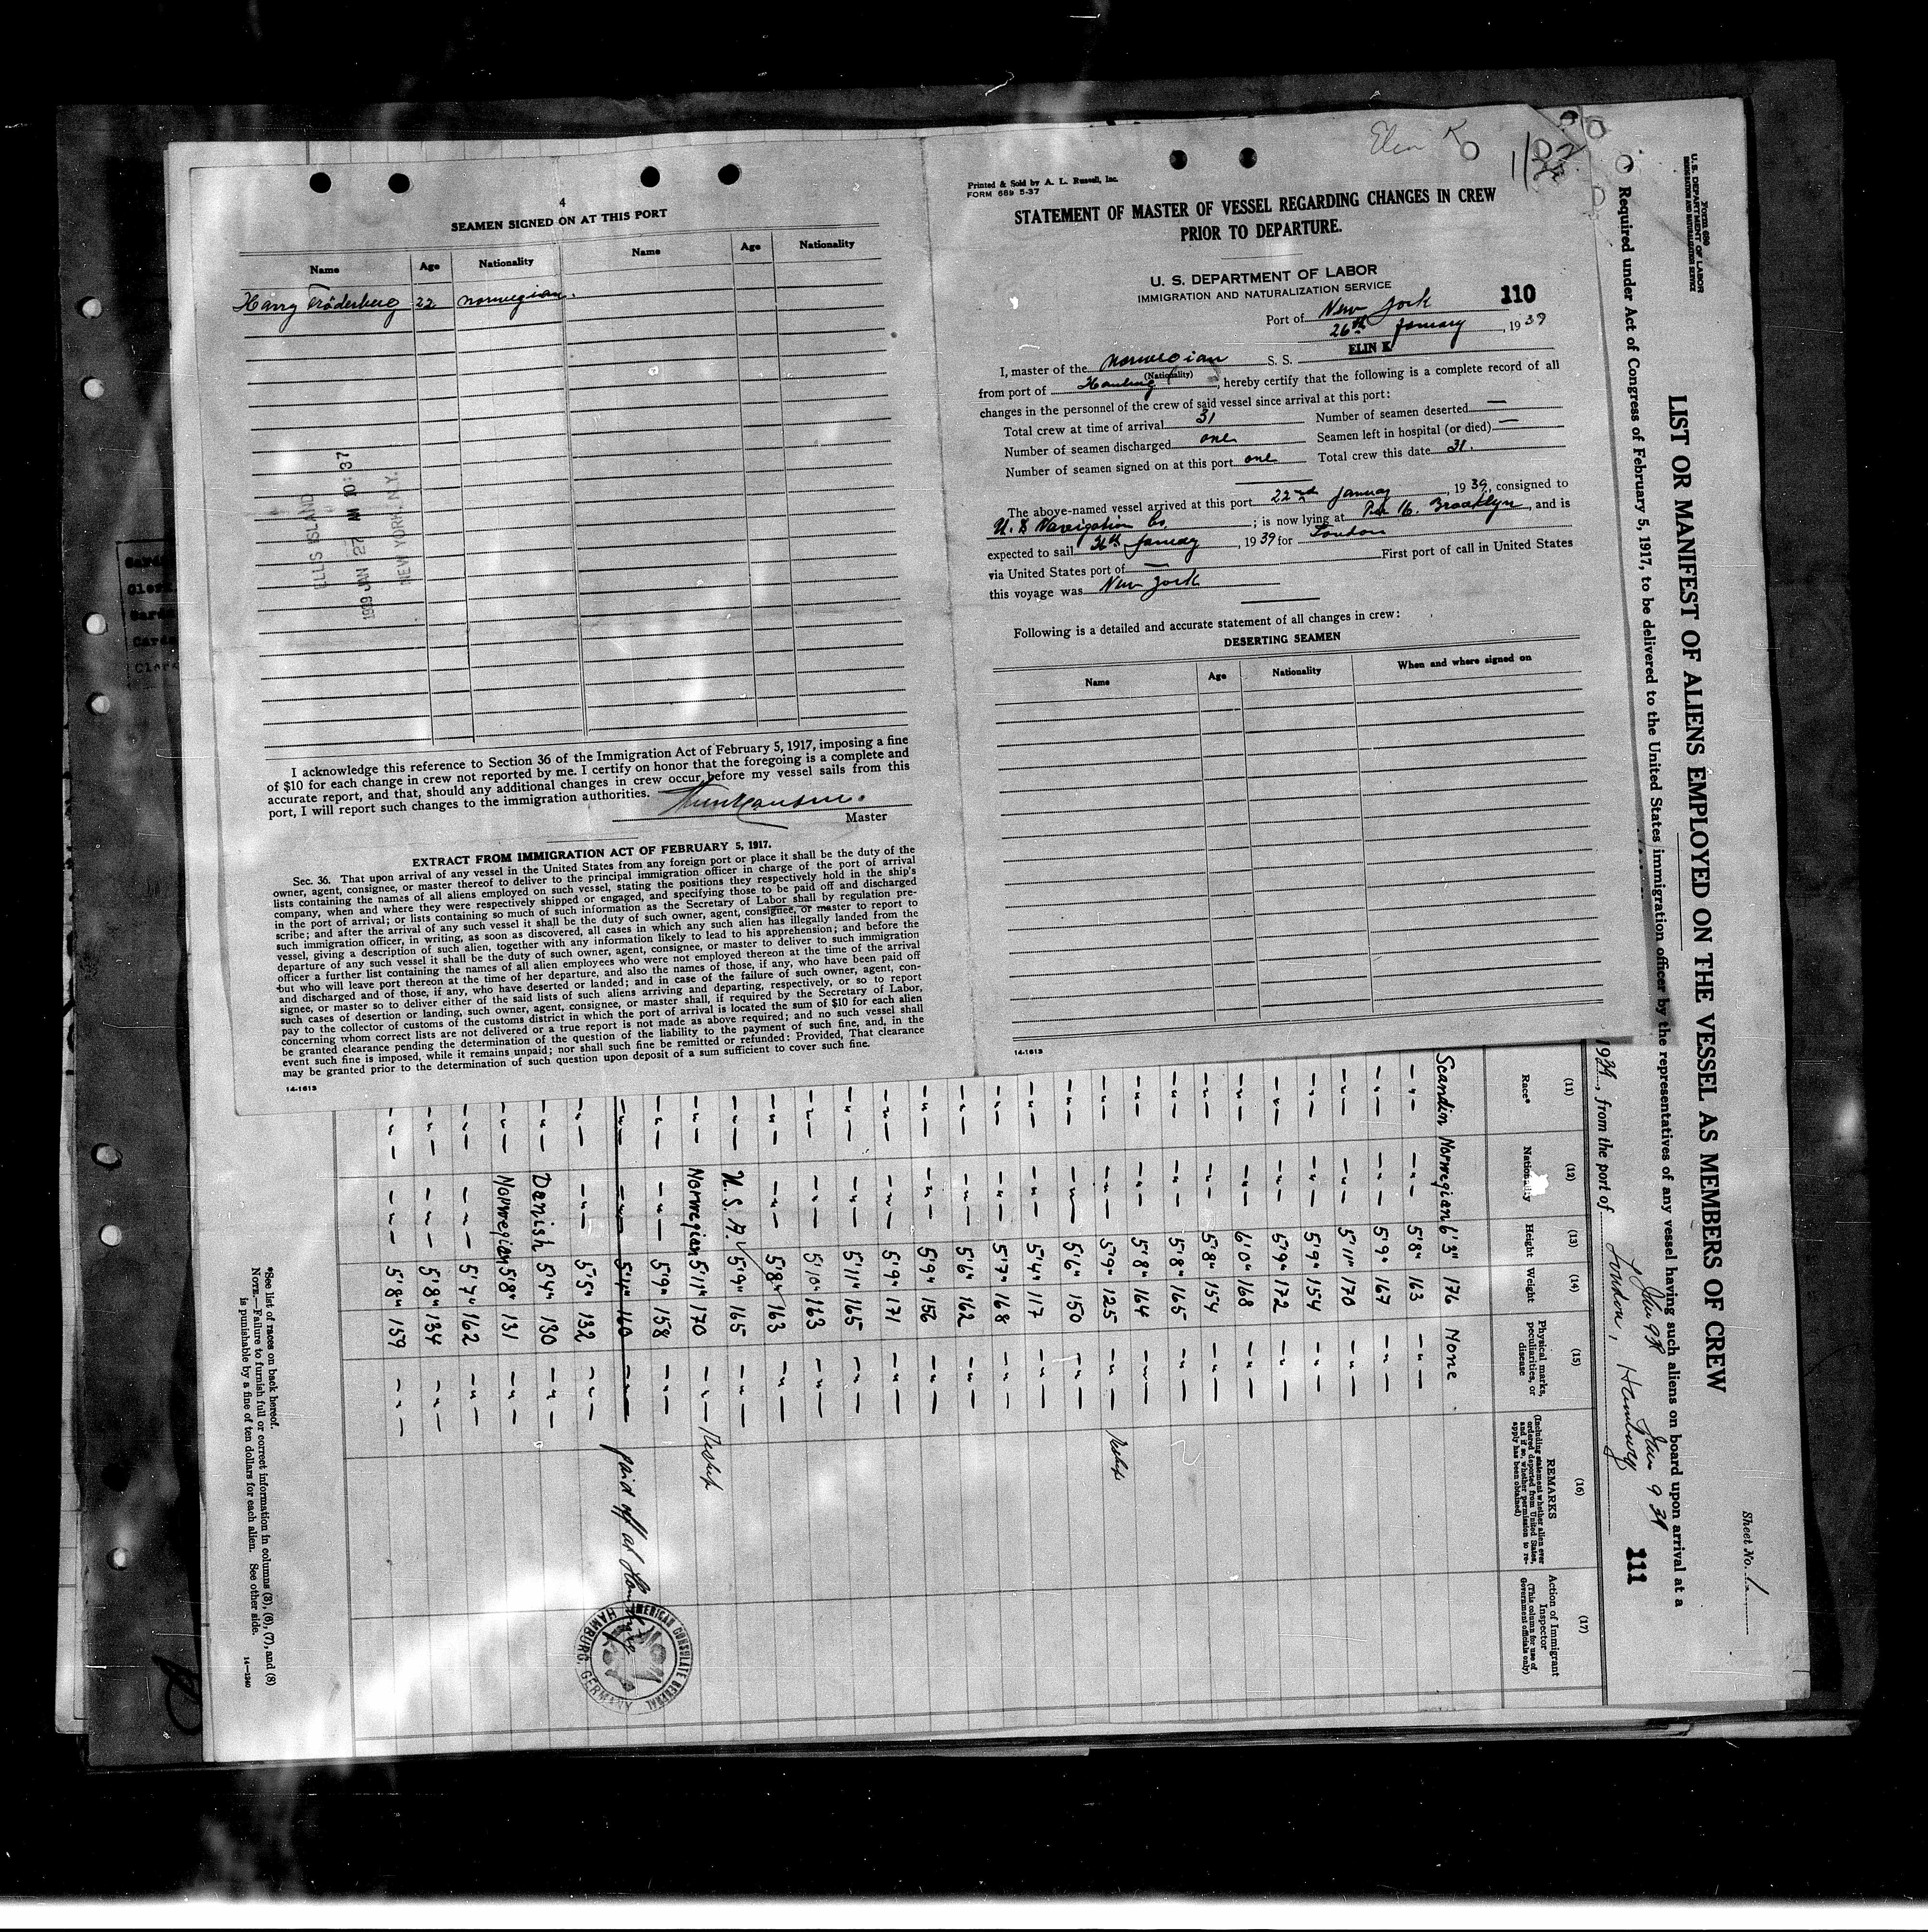 4
SEAMEN SIGNED ON AT THIS PORT
Name Age Nationality Name Age Nationality
Harry 22 norwegian.
ELLIS ISLAND
1939 JAN 27 AM 10:37
NEW YORK, N.Y.
I acknowledge this reference to Section 36 of the Immigration Act of February 5, 1917, imposing a fine
of $10 for each change in crew not reported by me. I certify on honor that the foregoing is a complete and
accurate report, and that, should any additional changes in crew occur before my vessel sails from this
port, I will report such changes to the immigration authorities.
Master
EXTRACT FROM IMMIGRATION ACT OF FEBRUARY 5, 1917.
Sec. 36. That upon arrival of any vessel in the United States from any foreign port or place it shall be the duty of the
owner, agent, consignee, or master thereof to deliver to the principal immigration officer in charge of the port of arrival
lists containing the names of all aliens employed on such vessel, stating the positions they respectively hold in the ship's
company, when and where they were respectively shipped or engaged, and specifying those to be paid off and discharged
in the port of arrival; or lists containing so much of such information as the Secretary of Labor shall by regulation pre-
scribe; and after the arrival of any such vessel it shall be the duty of such owner, agent, consignee, or master to report to
such immigration officer, in writing, as soon as discovered, all cases in which any such alien has illegally landed from the
vessel, giving a description of such alien, together with any information likely to lead to his apprehension; and before the
departure of any such vessel it shall be the duty of such owner, agent, consignee, or master to deliver to such immigration
officer a further list containing the names of all alien employees who were not employed thereon at the time of the arrival
but who will leave port thereon at the time of her departure, and also the names of those, if any, who have been paid off
and discharged and of those, if any, who have deserted or landed; and in case of the failure of such owner, agent, con-
signee, or master so to deliver either of the said lists of such aliens arriving and departing, respectively, or so to report
such cases of desertion or landing, such owner, agent, consignee, or master shall, if required by the Secretary of Labor,
pay to the collector of customs of the customs district in which the port of arrival is located the sum of $10 for each alien
concerning whom correct lists are not delivered or a true report is not made as above required; and no such vessel shall
be granted clearance pending the determination of the question of the liability to the payment of such fine, and, in the
event such fine is imposed, while it remains unpaid; nor shall such fine be remitted or refunded: Provided, That clearance
may be granted prior to the determination of such question upon deposit of a sum sufficient to cover such fine.
14-1613
Elin K
Printed & Sold by A. L. Russell, Inc.
FORM 689 5-37
STATEMENT OF MASTER OF VESSEL REGARDING CHANGES IN CREW
PRIOR TO DEPARTURE.
U. S. DEPARTMENT OF LABOR
IMMIGRATION AND NATURALIZATION SERVICE
110
Port of New York
26th January, 1939
I, master of the norwegian S. S. ELIN K
(Nationality)
from port of Hamburg, hereby certify that the following is a complete record of all
changes in the personnel of the crew of said vessel since arrival at this port:
Total crew at time of arrival 31 Number of seamen deserted —
Number of seamen discharged one Seamen left in hospital (or died) —
Number of seamen signed on at this port one Total crew this date 31.
The above-named vessel arrived at this port 22nd January, 1939, consigned to
U. S Navigation Co. ; is now lying at Pier 16. Brooklyn, and is
expected to sail 26th January, 1939 for London
via United States port of — First port of call in United States
this voyage was New York
Following is a detailed and accurate statement of all changes in crew:
DESERTING SEAMEN
Name Age Nationality When and where signed on
14-1613
Form 689
U. S. DEPARTMENT OF LABOR
IMMIGRATION AND NATURALIZATION SERVICE
Sheet No. 1
LIST OR MANIFEST OF ALIENS EMPLOYED ON THE VESSEL AS MEMBERS OF CREW
Required under Act of Congress of February 5, 1917, to be delivered to the United States immigration officer by the representatives of any vessel having such aliens on board upon arrival at a
1939, from the port of London, Hamburg
111
(11) (12) (13) (14) (15) (16) (17)
Race* Nationality Height Weight Physical marks, peculiarities, or disease REMARKS Action of Immigrant Inspector
(Including statement whether alien ever ordered deported from United States, and if so, whether permission to re-apply has been obtained)
(This column for use of Government officials only)
Scandin Norwegian 6'3" 176 None
-"- -"- 5'8" 163 -"-
-"- -"- 5'9" 167 -"-
-"- -"- 5'11" 170 -"-
-"- -"- 5'9" 154 -"-
-"- -"- 5'9" 172 -"-
-"- -"- 6'0" 168 -"-
-"- -"- 5'8" 154 -"-
-"- -"- 5'8" 165 -"-
-"- -"- 5'8" 164 -"-
-"- -"- 5'9" 125 -"- Reship
-"- -"- 5'6" 150 -"-
-"- -"- 5'4" 117 -"-
-"- -"- 5'7" 168 -"-
-"- -"- 5'6" 162 -"-
-"- -"- 5'9" 156 -"-
-"- -"- 5'9" 171 -"-
-"- -"- 5'11" 165 -"-
-"- -"- 5'10" 163 -"-
-"- -"- 5'8" 163 -"-
-"- U. S. A. 5'9" 165 -"-
-"- Norwegian 5'11" 170 -"- Reship
-"- -"- 5'9" 158 -"-
-"- -"- 5'11" 160 -"- paid off at Hamburg
-"- -"- 5'5" 132 -"-
-"- Danish 5'4" 130 -"-
-"- Norwegian 5'8" 131 -"-
-"- -"- 5'7" 162 -"-
-"- -"- 5'8" 134 -"-
-"- -"- 5'8" 159 -"-
AMERICAN CONSULATE GENERAL
HAMBURG, GERMANY
*See list of races on back hereof.
NOTE.—Failure to furnish full or correct information in columns (3), (6), (7), and (8)
is punishable by a fine of ten dollars for each alien. See other side.
14—1240